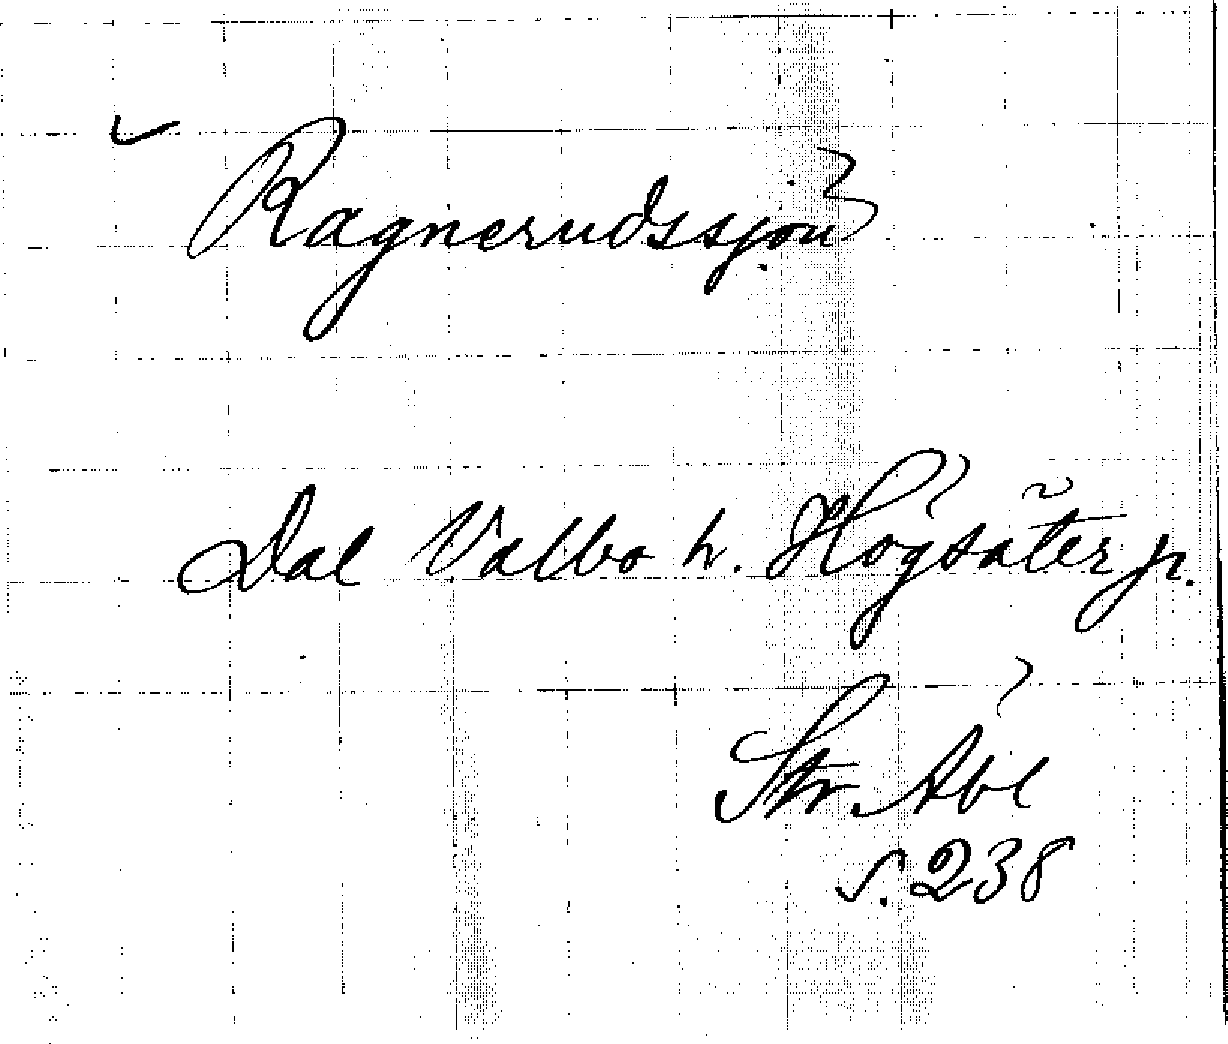 Ragnerudssjön
Dal Valbo h. Högsäter p.
Str. Abl
s. 238